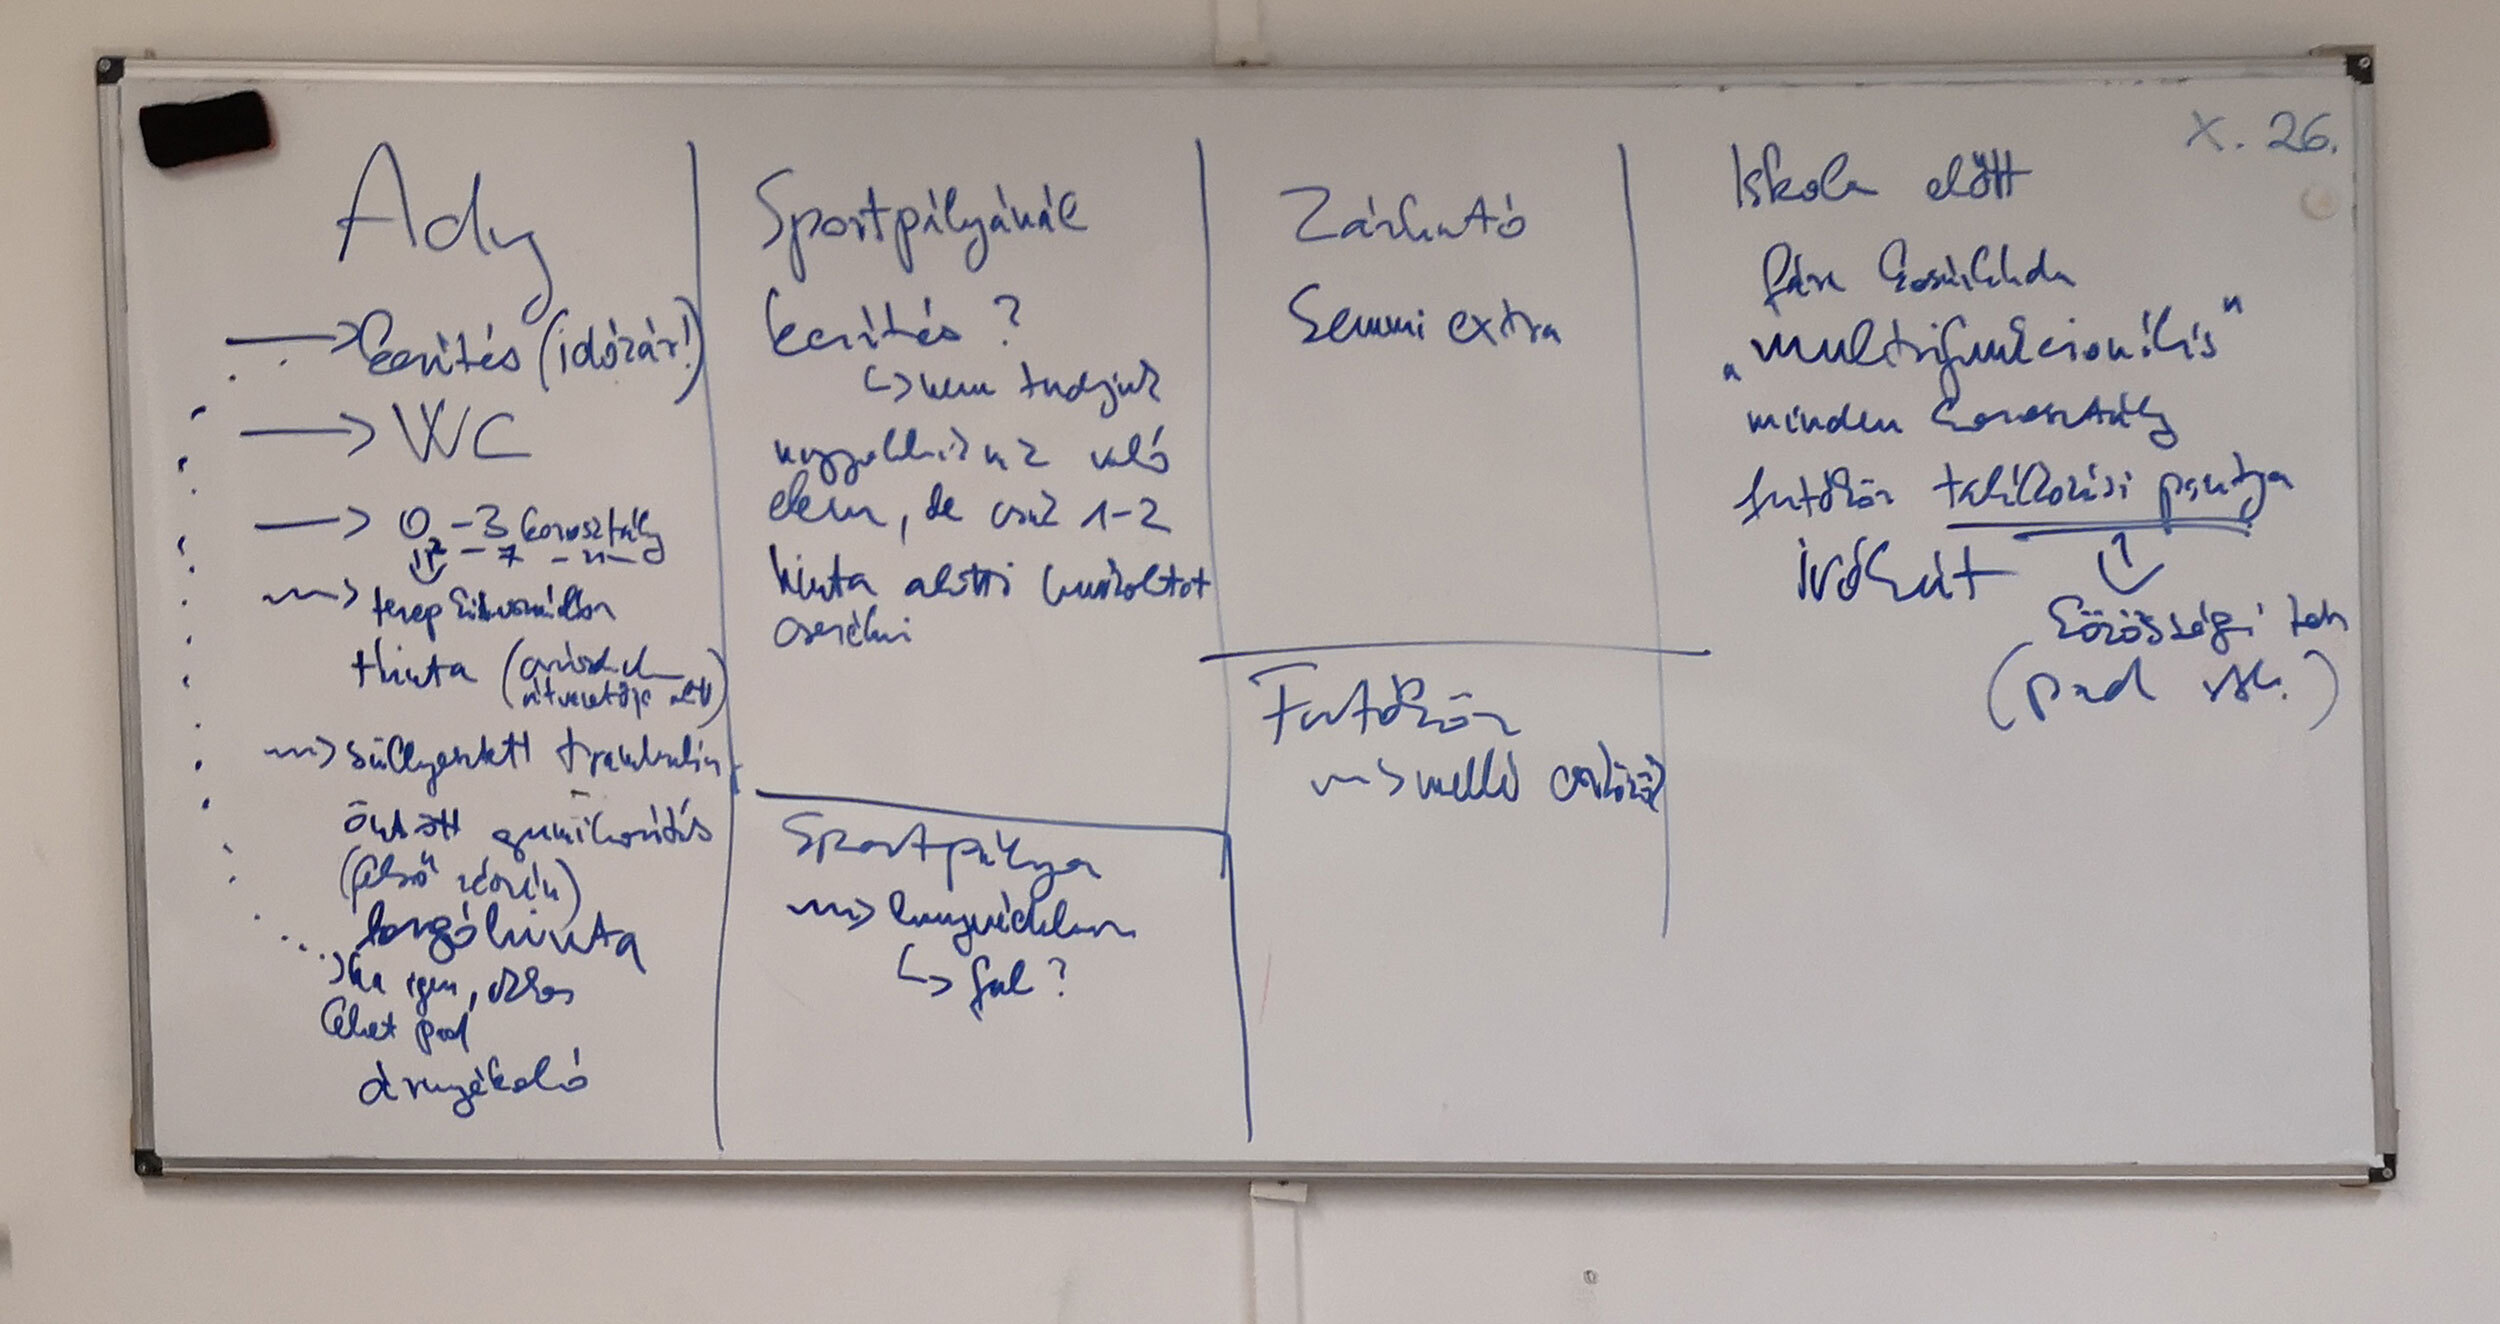 X. 26.
Ady
→ kerítés (időzár!)
→ WC
→ 0-3 korosztály
2 - 7 - n -
~> terep kihasználása
hinta (óriás
~> süllyesztett trambulin
öntött gumiborítás
(felső részén)
forgóhinta
ha igen, okos
lehet pad
árnyékoló
Sportpályánál
kerítés?
↳ nem tudjuk
nagyobbaknak való
elem, de csak 1-2
hinta alatti burkolatot
cserélni
Sportpálya
~> lengyel
↳ fal?
Zárható
Semmi extra
Futókör
~> mellé eszközök
Iskola előtt
fára
„multifunkcionális"
minden korosztály
futókör találkozási pontja
ivókút
↓
közösségi tér
(pad stb.)